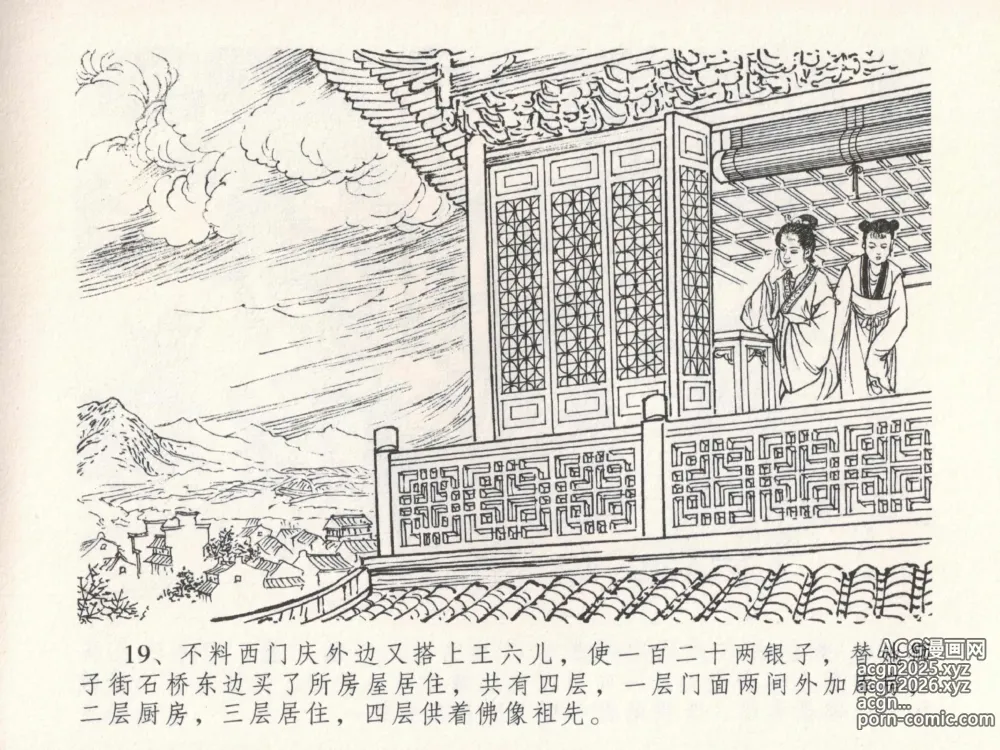 19、不料西门庆外边又搭上王六儿，使一百二十两银子，替
子街石桥东边买了所房屋居住，共有四层，一层门面两间外加
二层厨房，三层居住，四层供着佛像祖先。
ACG漫画网
acgn2025.xyz
acgn2026.xyz
acgn...
porn-comic.com